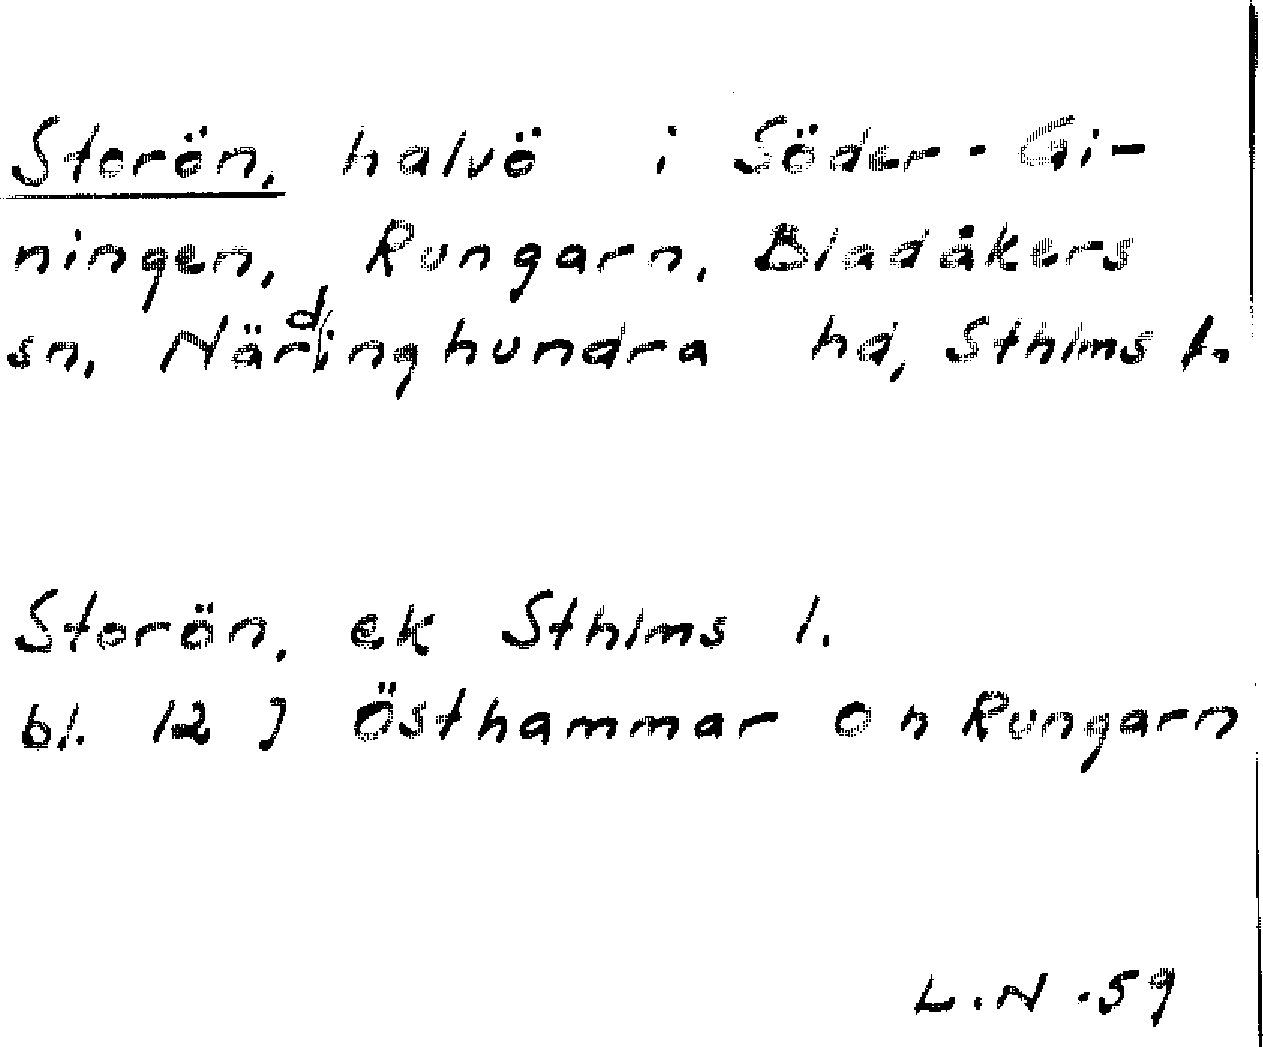 Storön, halvö i Söder-Gi-
ningen, Rungarn, Bladåkers
sn, Närdinghundra hd, Sthlms l.
Storön, ek Sthlms l.
bl. 12 J Östhammar on Rungarn
L.N.59